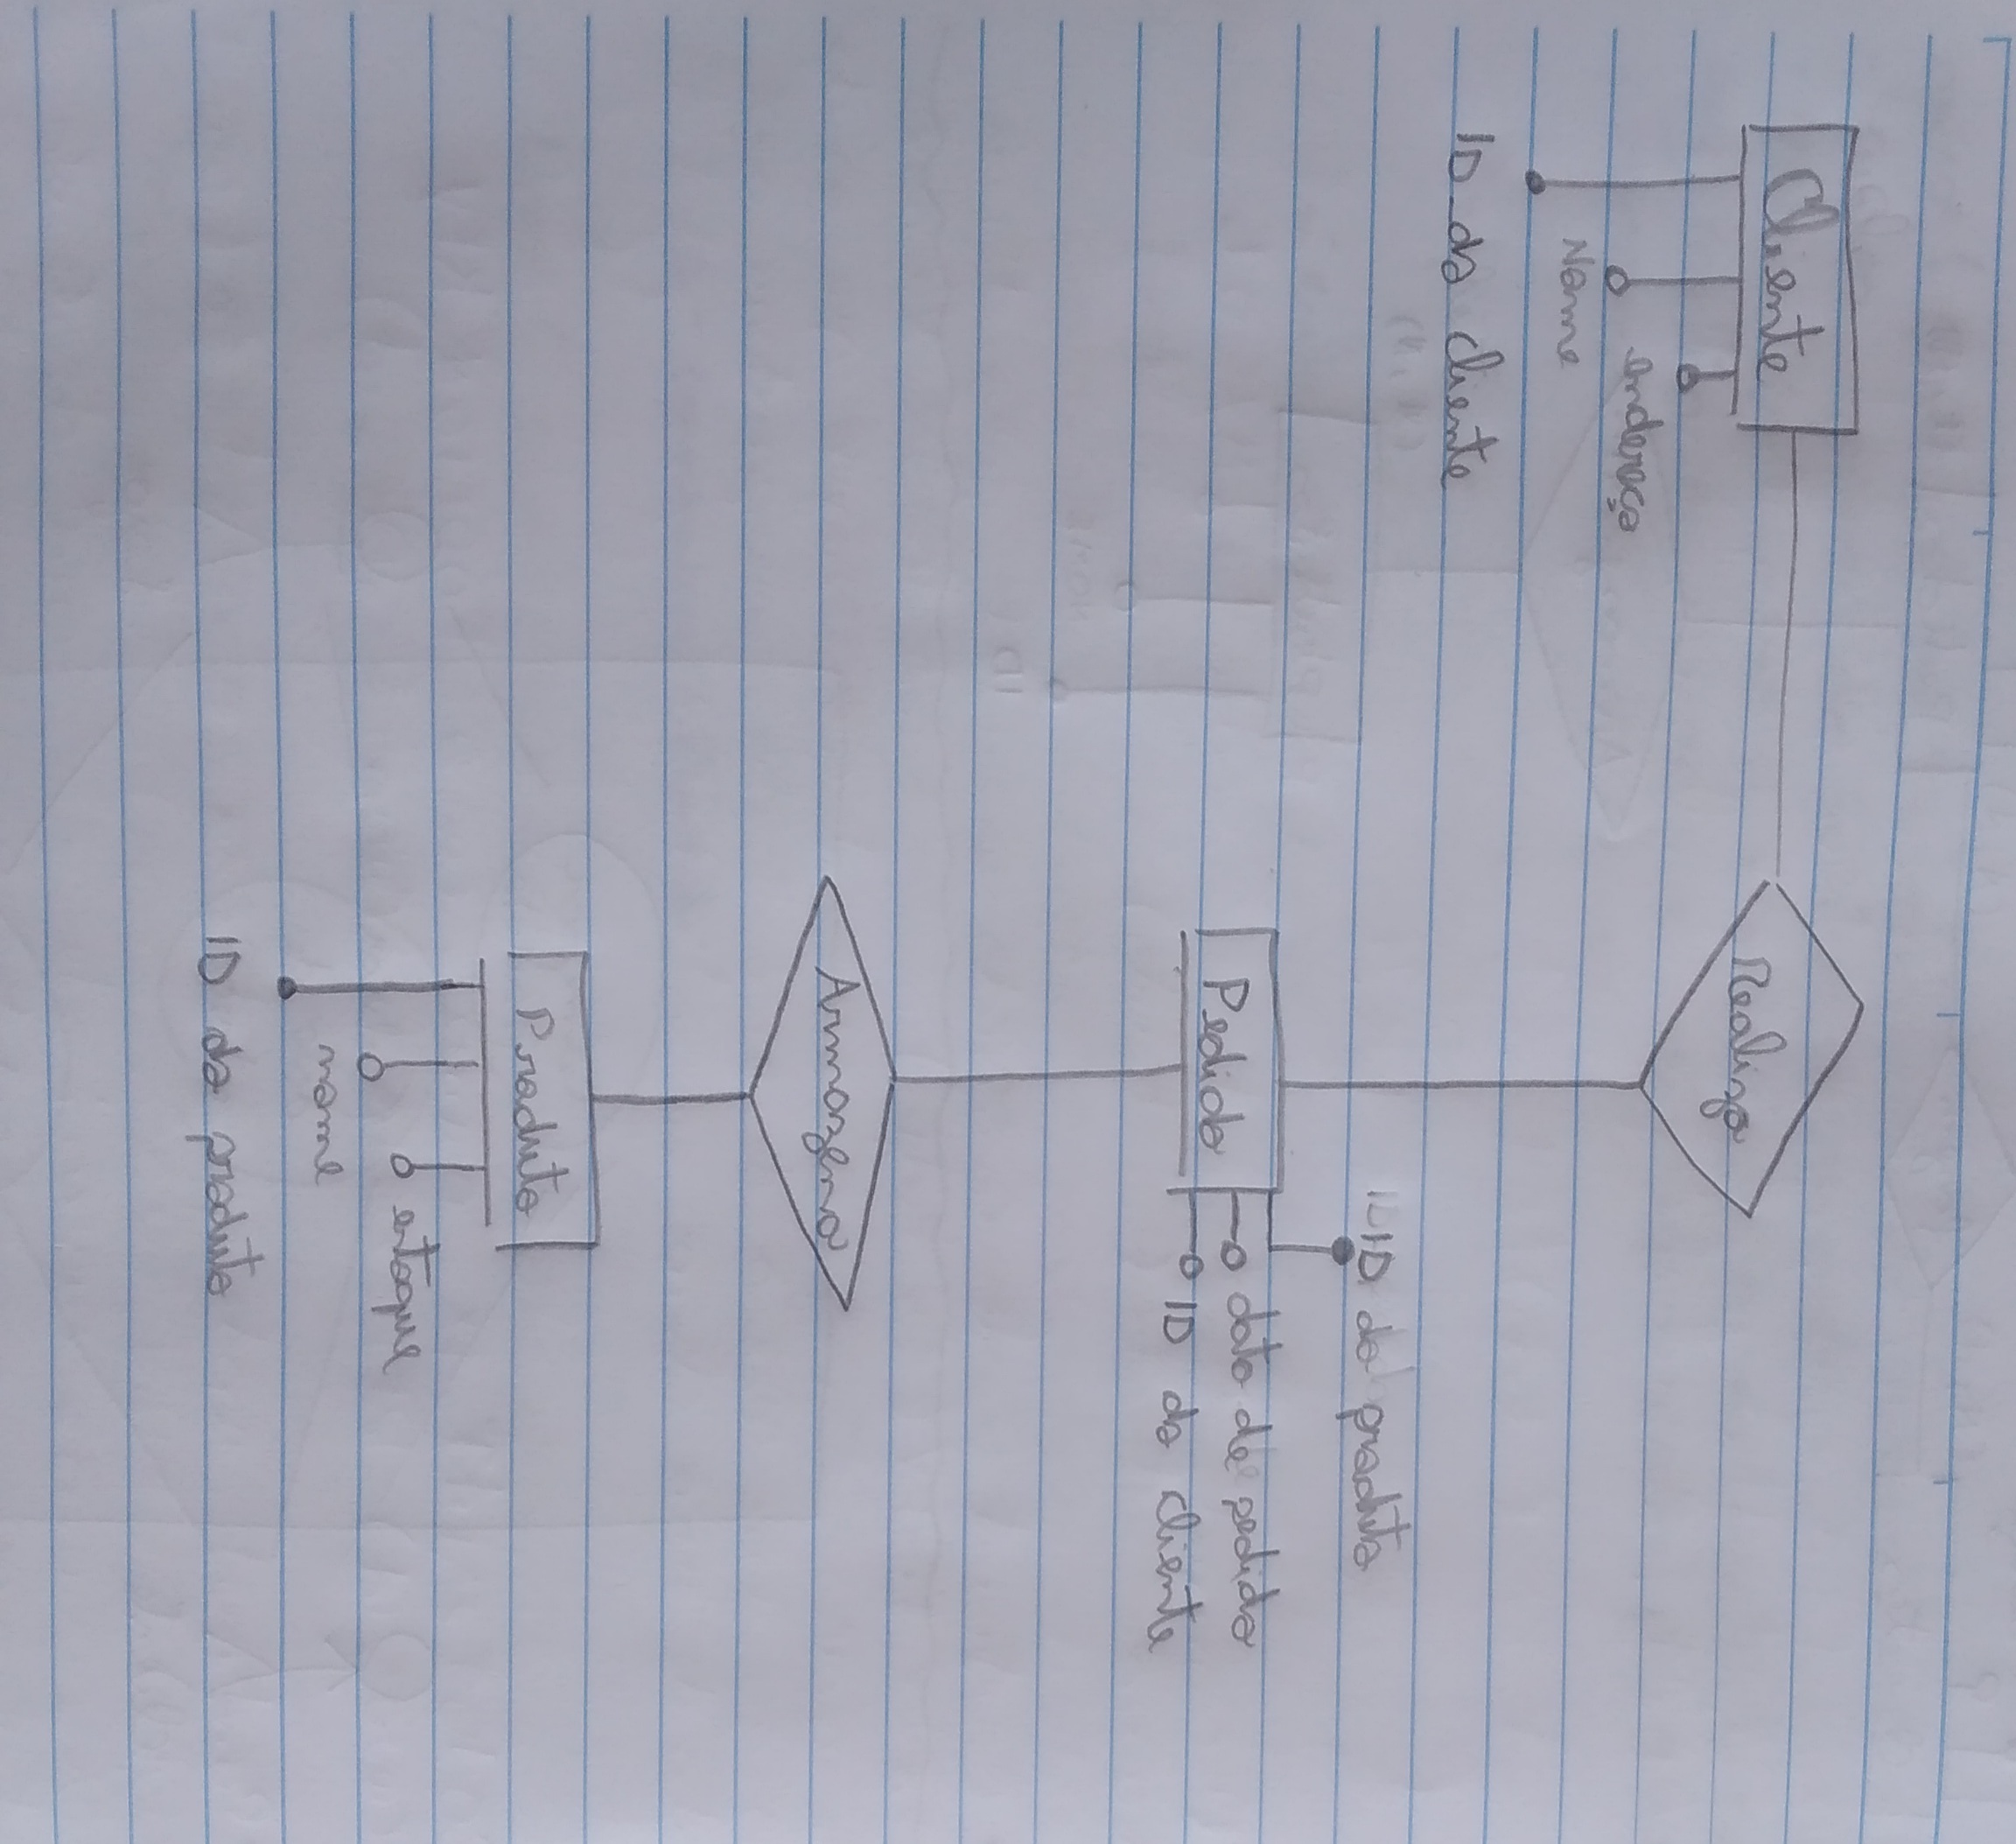 Cliente
endereço
Nome
ID do cliente
Realiza
ID do produto
Pedido
data de pedido
ID do cliente
Armazena
Produto
estoque
nome
ID do produto